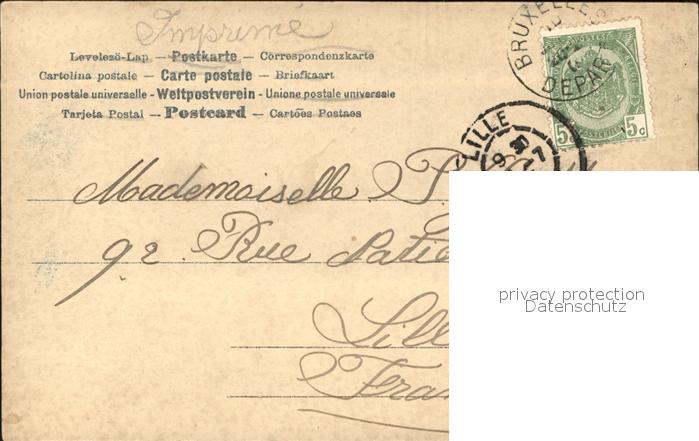 Imprimé
Levelező-Lap — Postkarte — Correspondenzkarte
Cartolina postale — Carte postale — Briefkaart
Union postale universelle - Weltpostverein - Unione postale universale
Tarjeta Postal — Postcard — Cartões Postaes
BRUXELLES
DEPART
5c 5c
LILLE
Mademoiselle P.
92 Rue
Lill
Fran
privacy protection
Datenschutz